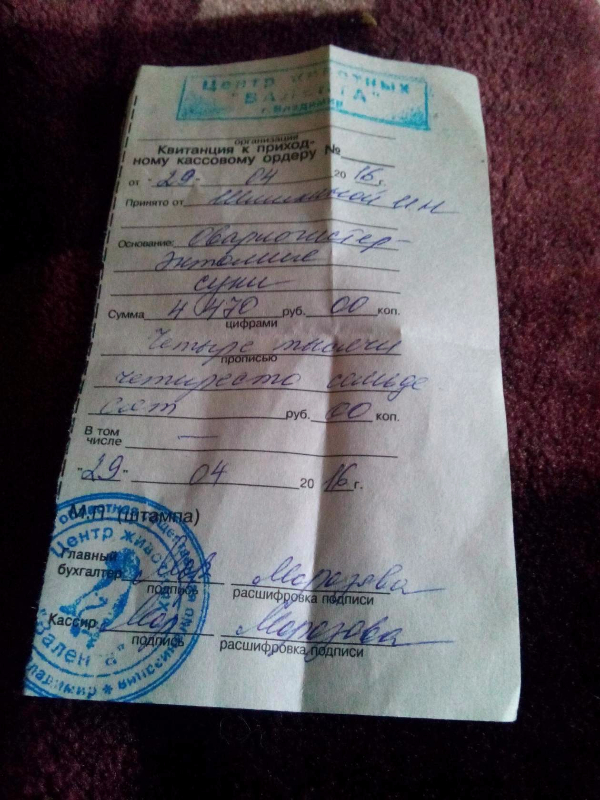 Центр животных
"ВАЛЕНТА"
г. Владимир
организация
Квитанция к приход-
ному кассовому ордеру №
от "29" 04 2016 г.
Принято от И Н
Основание: Овариогистер-
эктомия
суки
Сумма 4 470 руб. 00 коп.
цифрами
Четыре тысячи
прописью
четыреста семьде
сят руб. 00 коп.
В том
числе —
"29" 04 2016 г.
М.П. (штампа)
Главный
бухгалтер Мор Морозова
подпись расшифровка подписи
Кассир Мор Морозова
подпись расшифровка подписи
областная общ
Центр живот
"Валента"
Владимир *